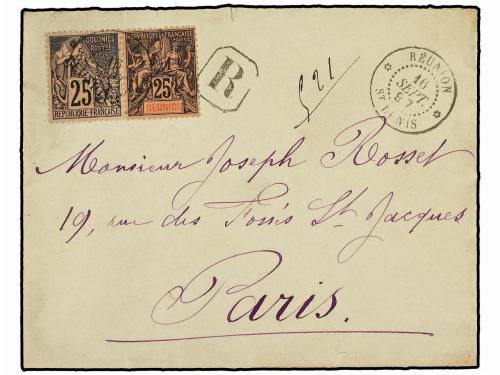 COLONIES
POSTES
25
REPUBLIQUE FRANÇAISE
REPUBLIQUE FRANÇAISE
25
RÉUNION
R
521
RÉUNION
16
SEPT
97
ST DENIS
Monsieur Joseph Rosset
19, rue des Fossés St Jacques
Paris.